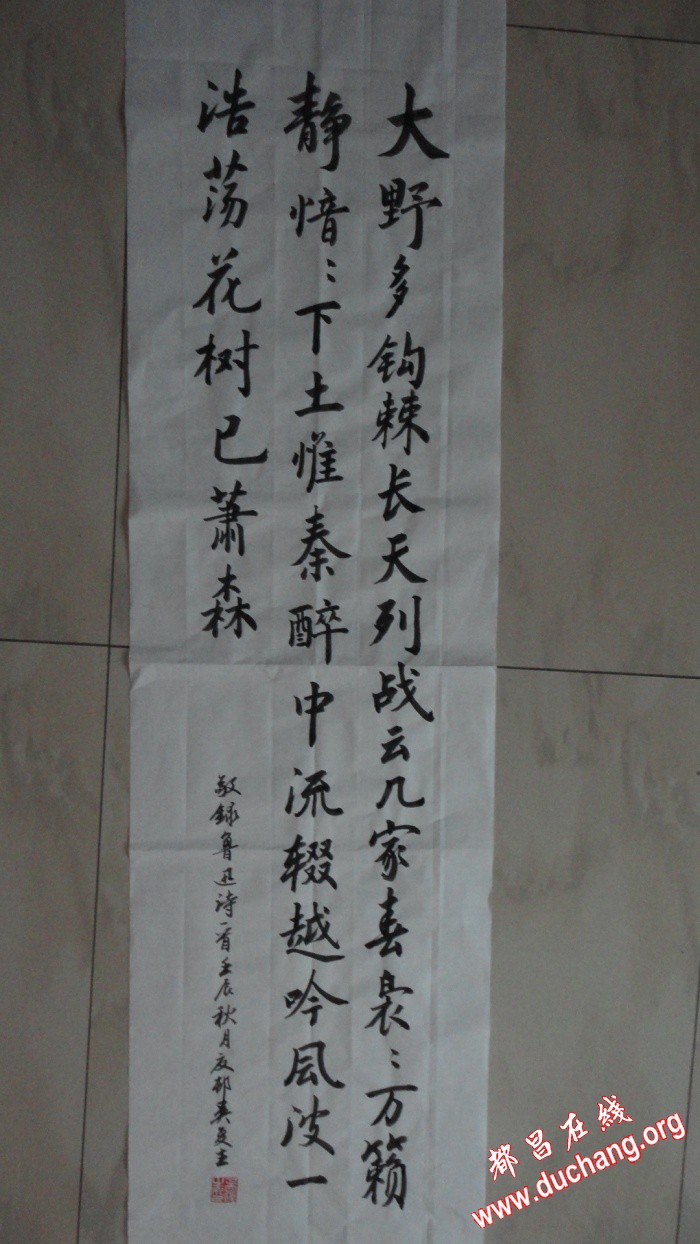 大野多钩棘长天列战云几家春袅〻万籁
静愔〻下土惟秦醉中流辍越吟风波一
浩荡花树已萧森
敬録鲁迅诗一首壬辰秋月
都昌在线
www.duchang.org